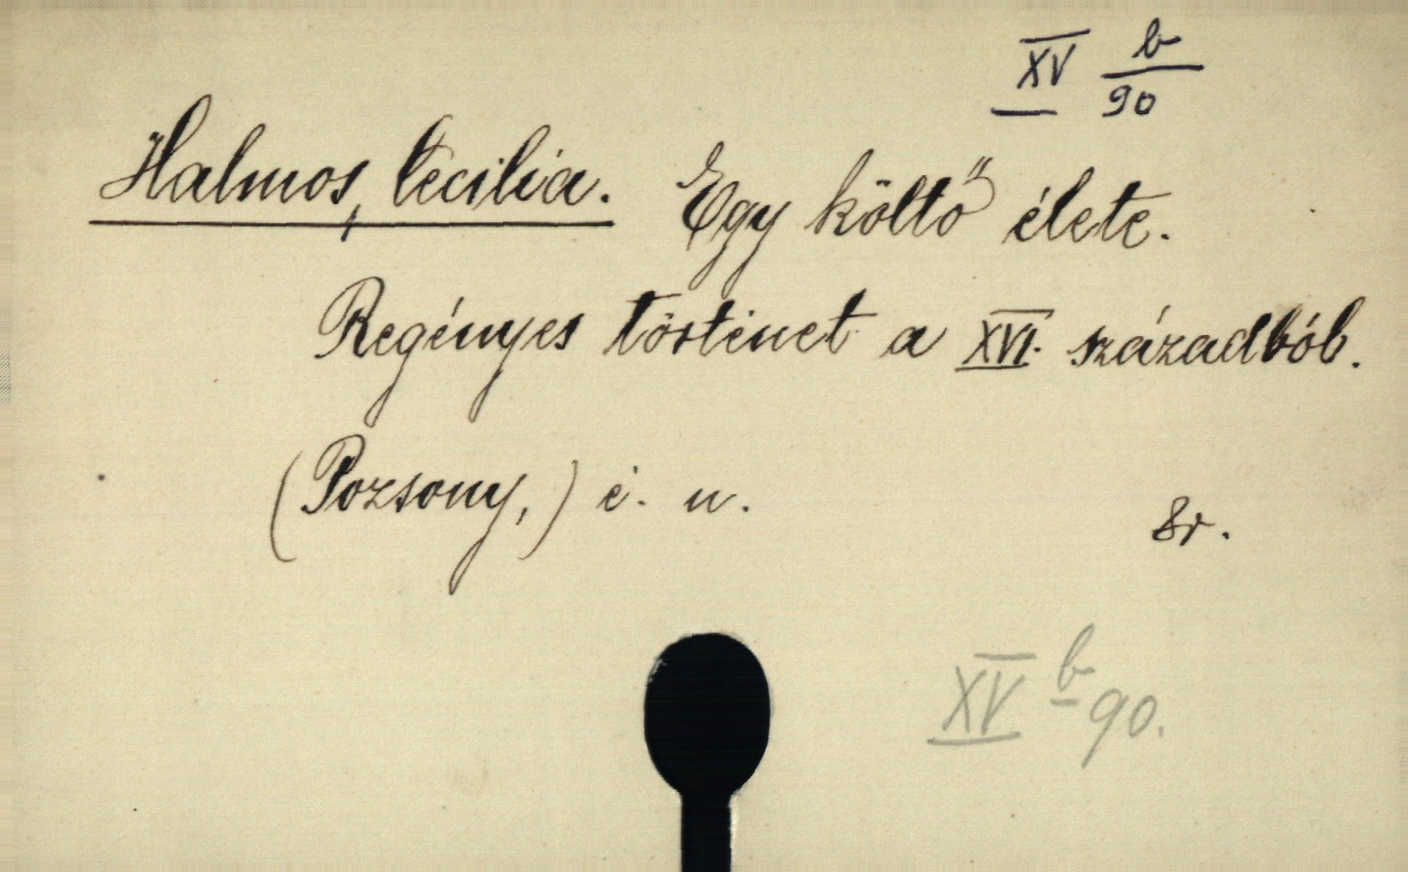 XV b/90
Halmos, Cecilia. Egy költő élete.
Regényes történet a XVI. századból.
(Pozsony,) é. n.
8r.
XV b 90.